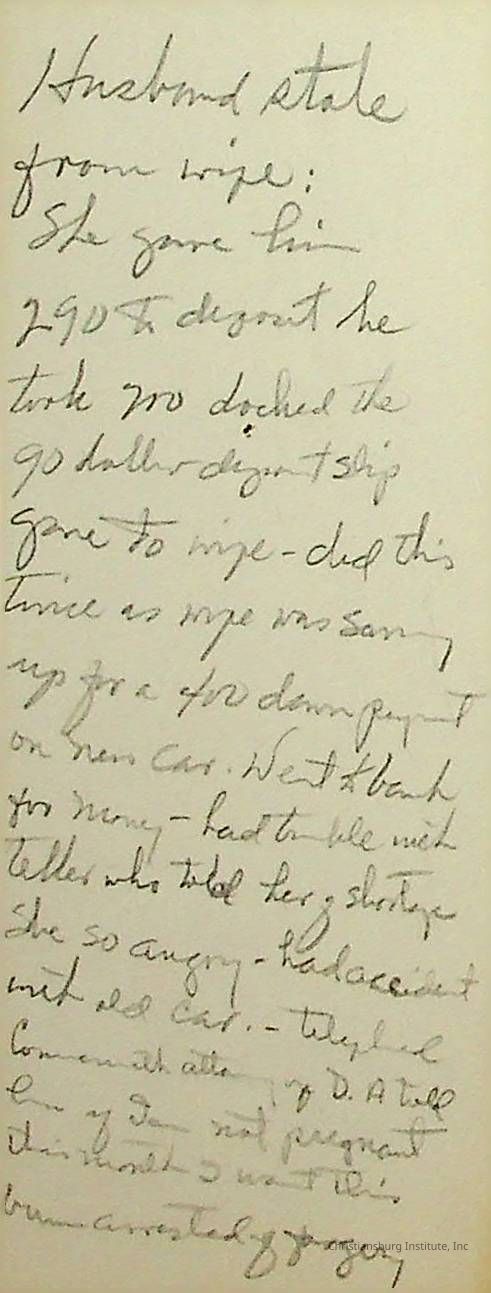 Husband stole
from wife:
She gave him
290 to deposit he
took 200 docked the
90 dollar deposit slip
gave to wife - did this
twice as wife was saving
up for a 400 down payment
on new car. Went to bank
for money - had trouble with
teller who told her of shortage
She so angry - had accident
with old car. - telephoned
Commonwealth attorney D. A told
him if I am not pregnant
this month I want this
bum arrested of forgery
Christiansburg Institute, Inc